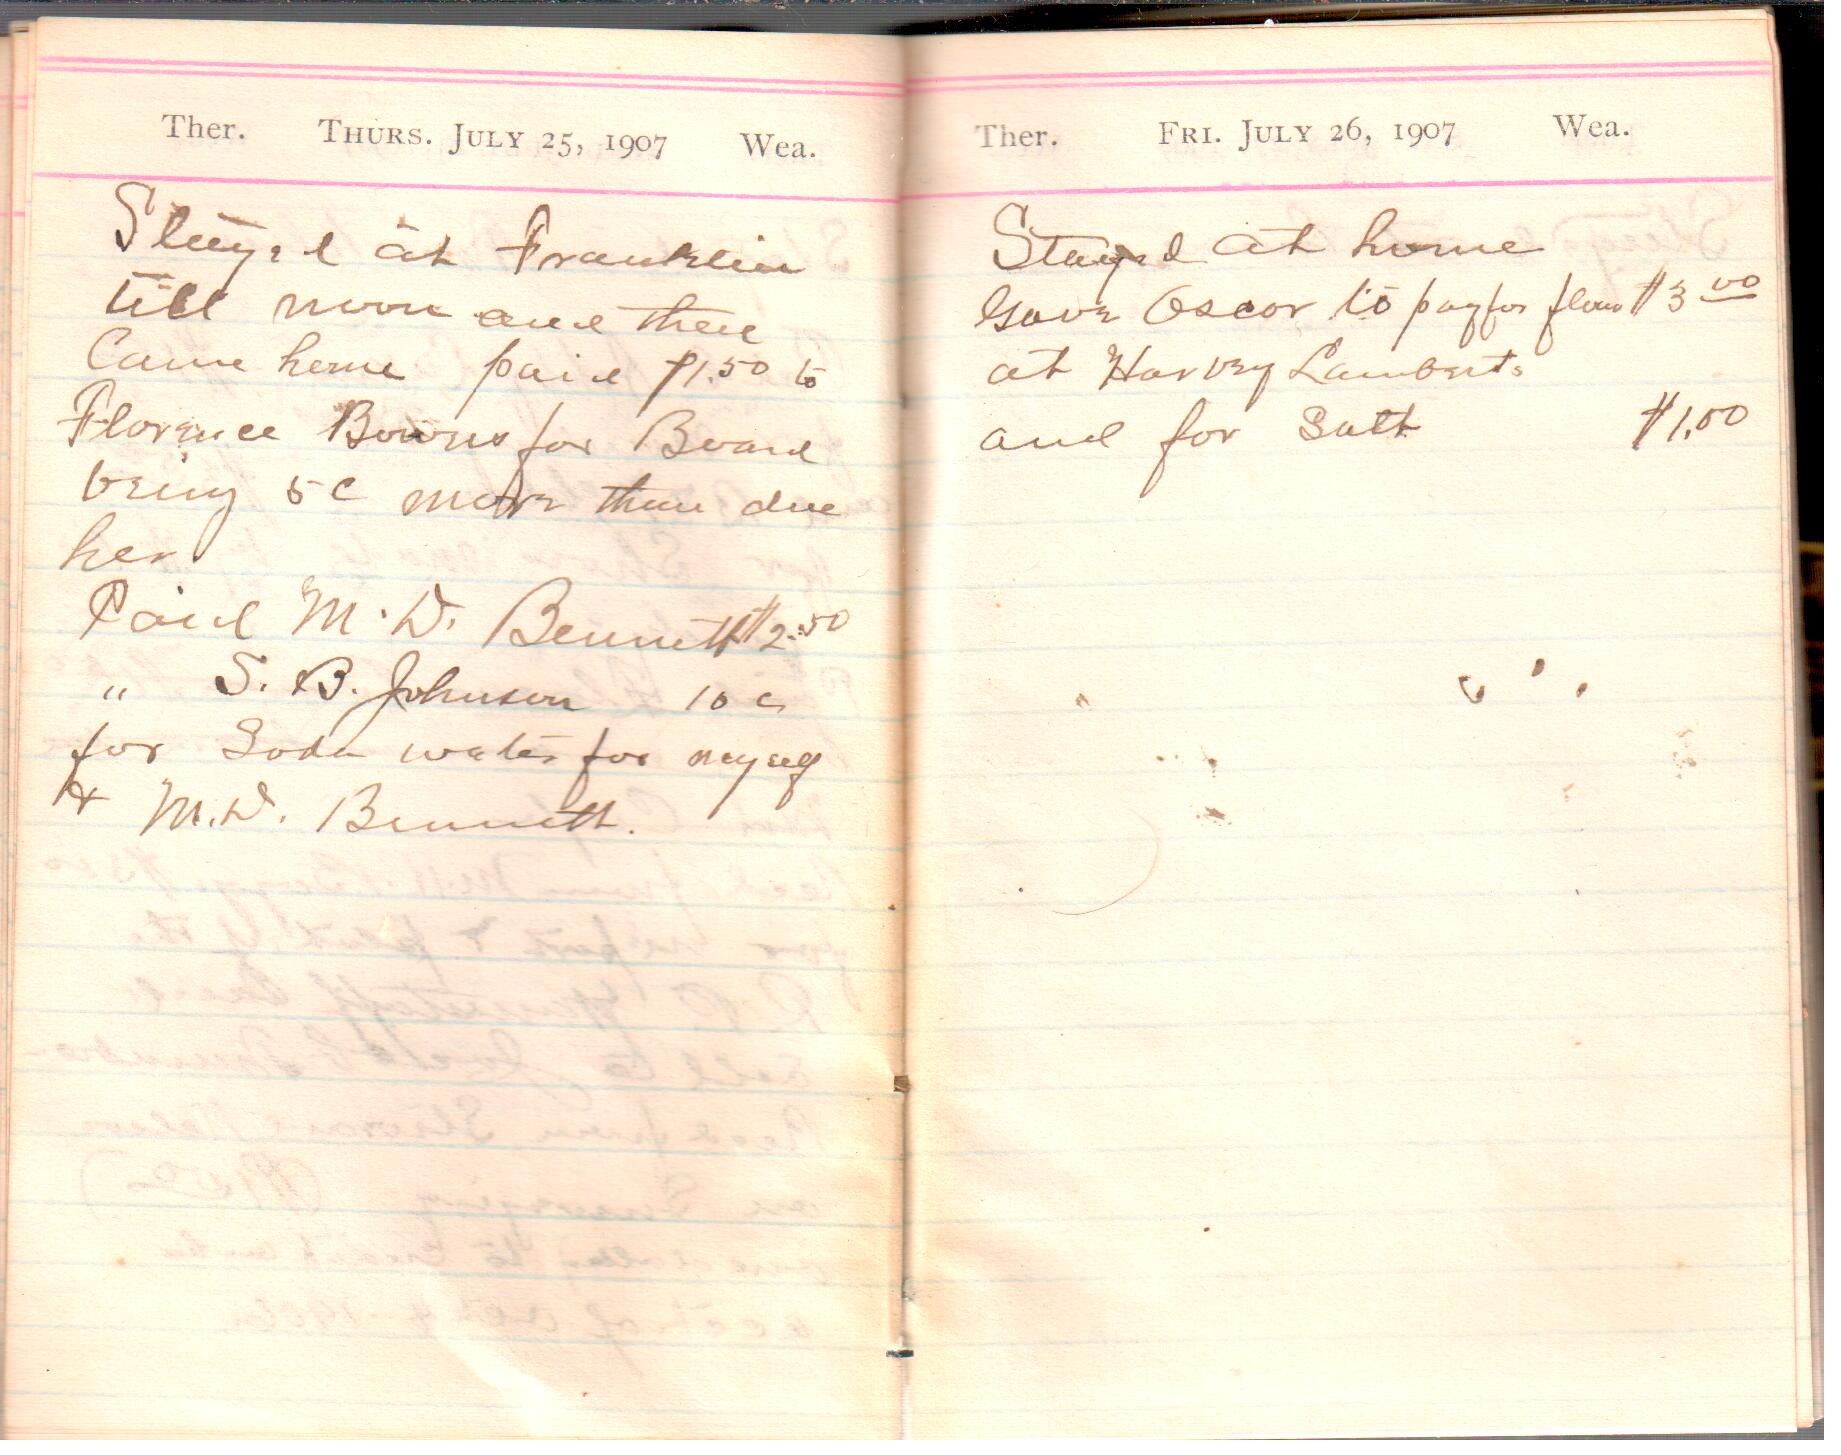 Ther. THURS. JULY 25, 1907 Wea.
Stayed at Franklin
till noon and then
Came home paid $1.50 to
Florence Bowns for Board
being 5c more than due
her
Paid M. D. Bennett $2.50
" S. B. Johnson 10 c
for Soda water for myself
& M. D. Bennett.
Ther. FRI. JULY 26, 1907 Wea.
Stayed at home
Gave Oscar to pay for flour $3 00
at Harvey Lamberts
and for Salt $1.00